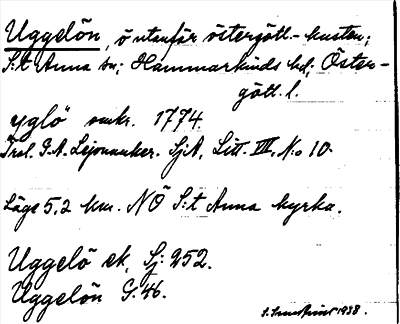 Uggelön, ö utanför östergötl.- kusten;
S:t Anna sn; Hammarkinds hd; Öster-
götl. l.
yglö omkr. 1774.
Trol. G.A. Lejonanker. SjA, Litt. VII, N:o 10.
Läge 5,2 km. NÖ S:t Anna kyrka.
Uggelö ek, Sj: 252.
Uggelön G. 46.
1938.